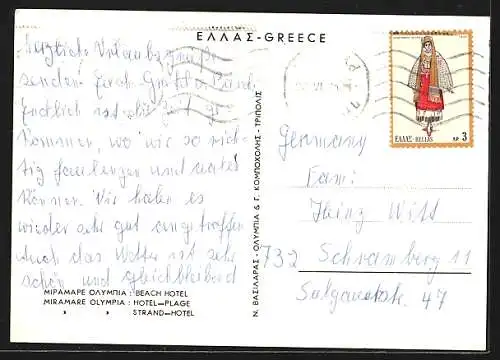 ΕΛΛΑΣ-GREECE
Herzliche Urlaubsgrüße
senden Euch
Endlich ist die Zeit ge
kommen, wo wir so rich
tig faulenzen und
können. Wir haben es
wieder sehr gut angetroffen
auch das Wetter ist sehr
schön und gleichbleibend
ΜΙΡΑΜΑΡΕ ΟΛΥΜΠΙΑ : BEACH HOTEL
MIRAMARE OLYMPIA : HOTEL-PLAGE
» » STRAND-HOTEL
Ν. ΒΑΣΙΛΑΡΑΣ - ΟΛΥΜΠΙΑ & Γ. ΚΟΜΠΟΧΟΛΗΣ - ΤΡΙΠΟΛΙΣ
ΕΛΛΑΣ-HELLAS ΔΡ. 3
Germany
Fam:
Heinz Witt
732 Schramberg 11
47